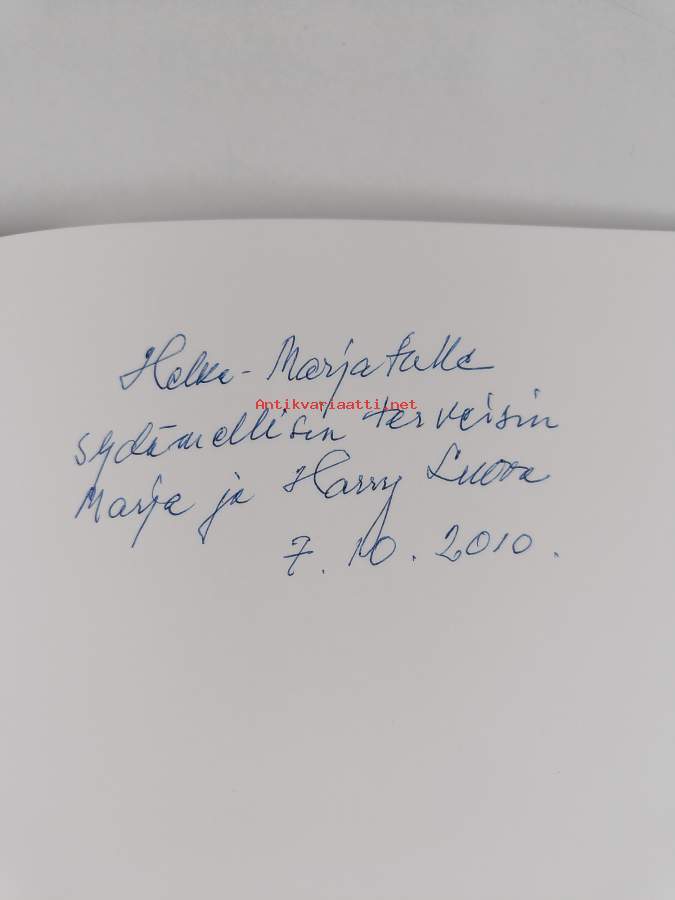 Helka-Marjatalle
Antikvariaatti.net
sydämellisin terveisin
Marja ja Harry Luova
7.10.2010.